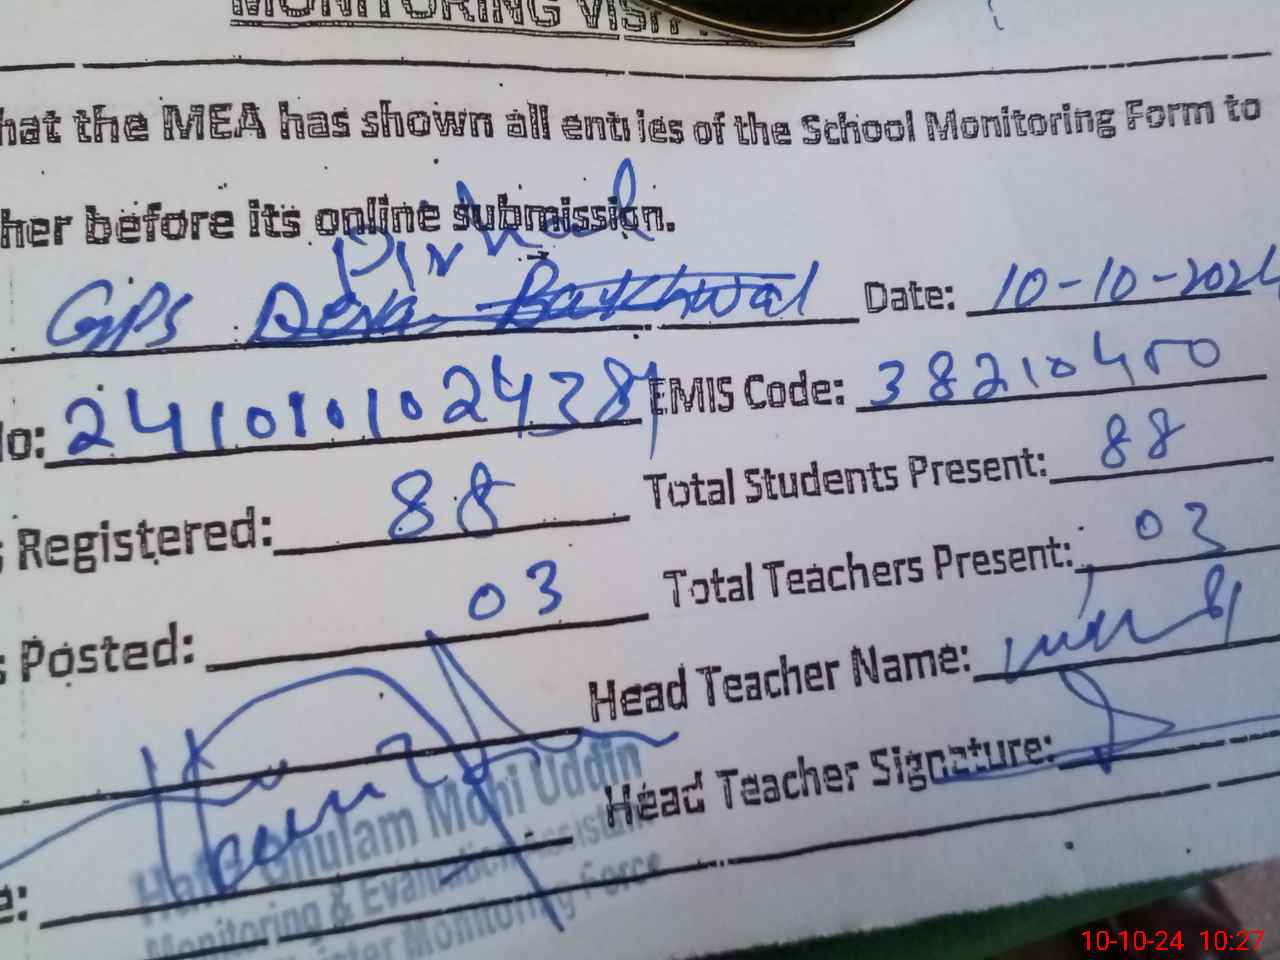 MONITORING VISIT
hat the MEA has shown all entries of the School Monitoring Form to
her before its online submission.
GPS Date: 10-10-2024
No: 2410101024384 EMIS Code: 38210450
s Registered: 88 Total Students Present: 88
s Posted: 03 Total Teachers Present: 03
Head Teacher Name:
Head Teacher Signature:
e:
Hafiz Ghulam Mohi Uddin
Monitoring & Evaluation Assistant
Monitoring Force
10-10-24 10:27